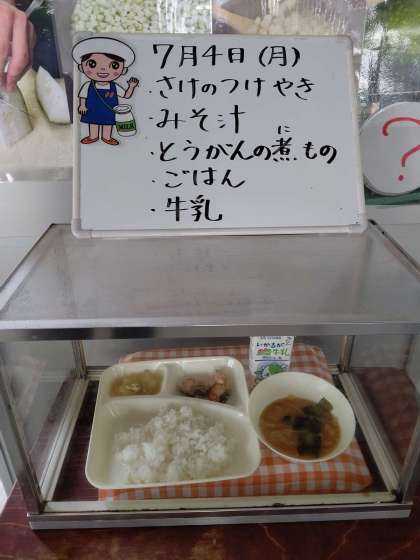 7月4日(月)
・さけのつけやき
・みそ汁
・とうがんの煮もの
に
・ごはん
・牛乳
MILK
?
いかるが
牛乳